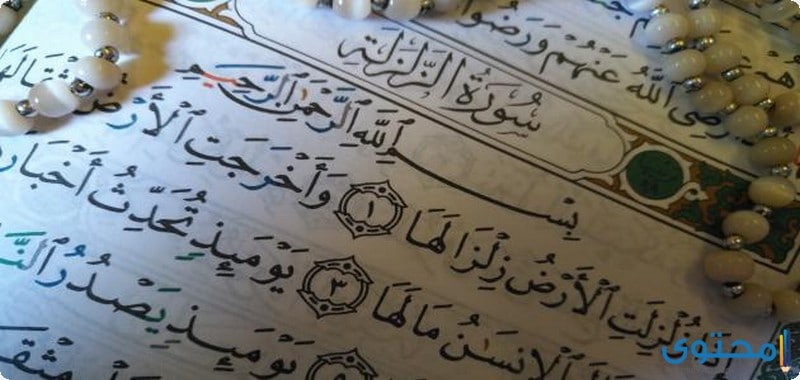 رَّضِىَ ٱللَّهُ عَنْهُمْ وَرَضُوا
سُورَةُ ٱلزَّلْزَلَةِ
بِسْمِ ٱللَّهِ ٱلرَّحْمَٰنِ ٱلرَّحِيمِ
زُلْزِلَتِ ٱلْأَرْضُ زِلْزَالَهَا ١ وَأَخْرَجَتِ ٱلْأَرْضُ أَثْقَالَهَا
ٱلْإِنسَٰنُ مَا لَهَا ٣ يَوْمَئِذٍ تُحَدِّثُ أَخْبَارَ
يَوْمَئِذٍ يَصْدُرُ ٱلنَّا
مِثْقَ
محتوى